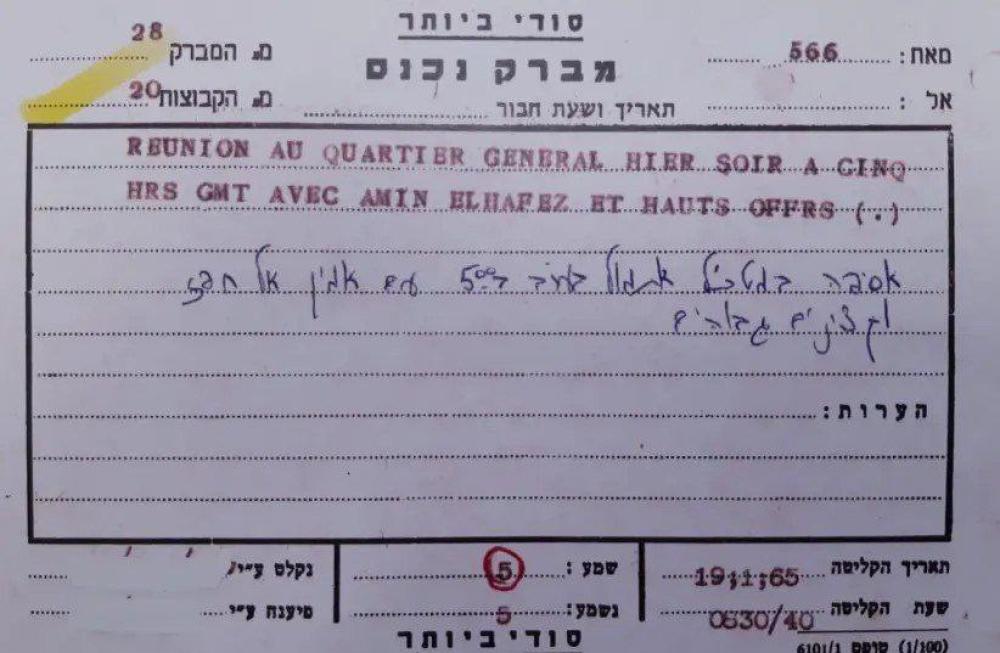 סודי ביותר
מאת: 566
מס. המברק 28
מברק נכנס
אל:
מס. הקבוצות 20
תאריך ושעת חבור
REUNION AU QUARTIER GENERAL HIER SOIR A CINQ
HRS GMT AVEC AMIN ELHAFEZ ET HAUTS OFFRS (.)
אסיפה במטכ"ל אתמול בערב ב 5:00 עם אמין אל חפז
וקצינים גבוהים
הערות:
תאריך הקליטה 19;1;65
שמע: 5
נקלט ע"י
שעת הקליטה 0830/40
נשמע: 5
פיענח ע"י
סודי ביותר
6101/1 טופס (1/100)